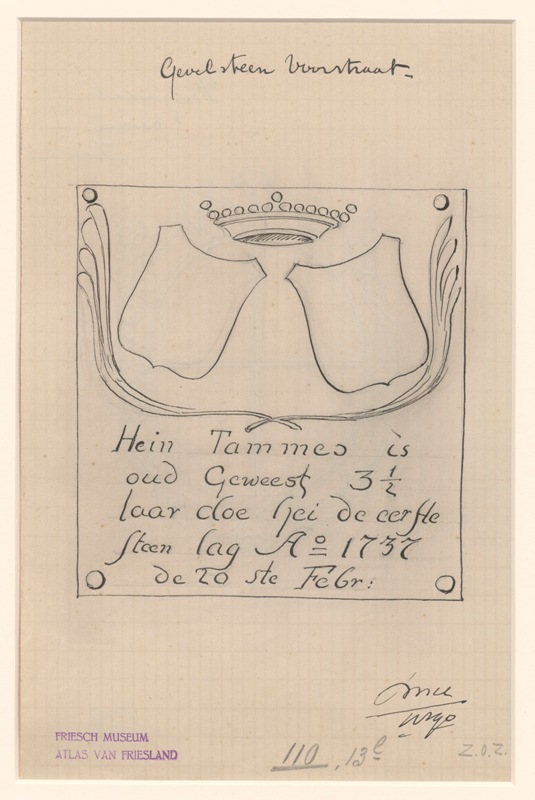 Gevelsteen Voorstraat
Hein Tammes is
oud Geweest 3 1/2
Iaar doe hei de eerste
steen lag Aº 1737
de 20 ste Febr:
FRIESCH MUSEUM
ATLAS VAN FRIESLAND
110, 13e
Z.O.Z.